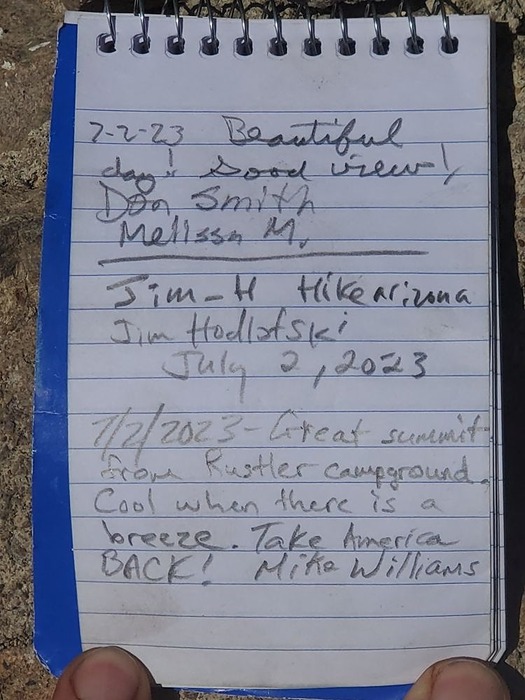 7-2-23 Beautiful
day! Good view!
Don Smith
Melissa M.
Jim-H Hikearizona
Jim Hodlofski
July 2, 2023
7/2/2023- Great summit
from Rustler campground.
Cool when there is a
breeze. Take America
BACK! Mike Williams